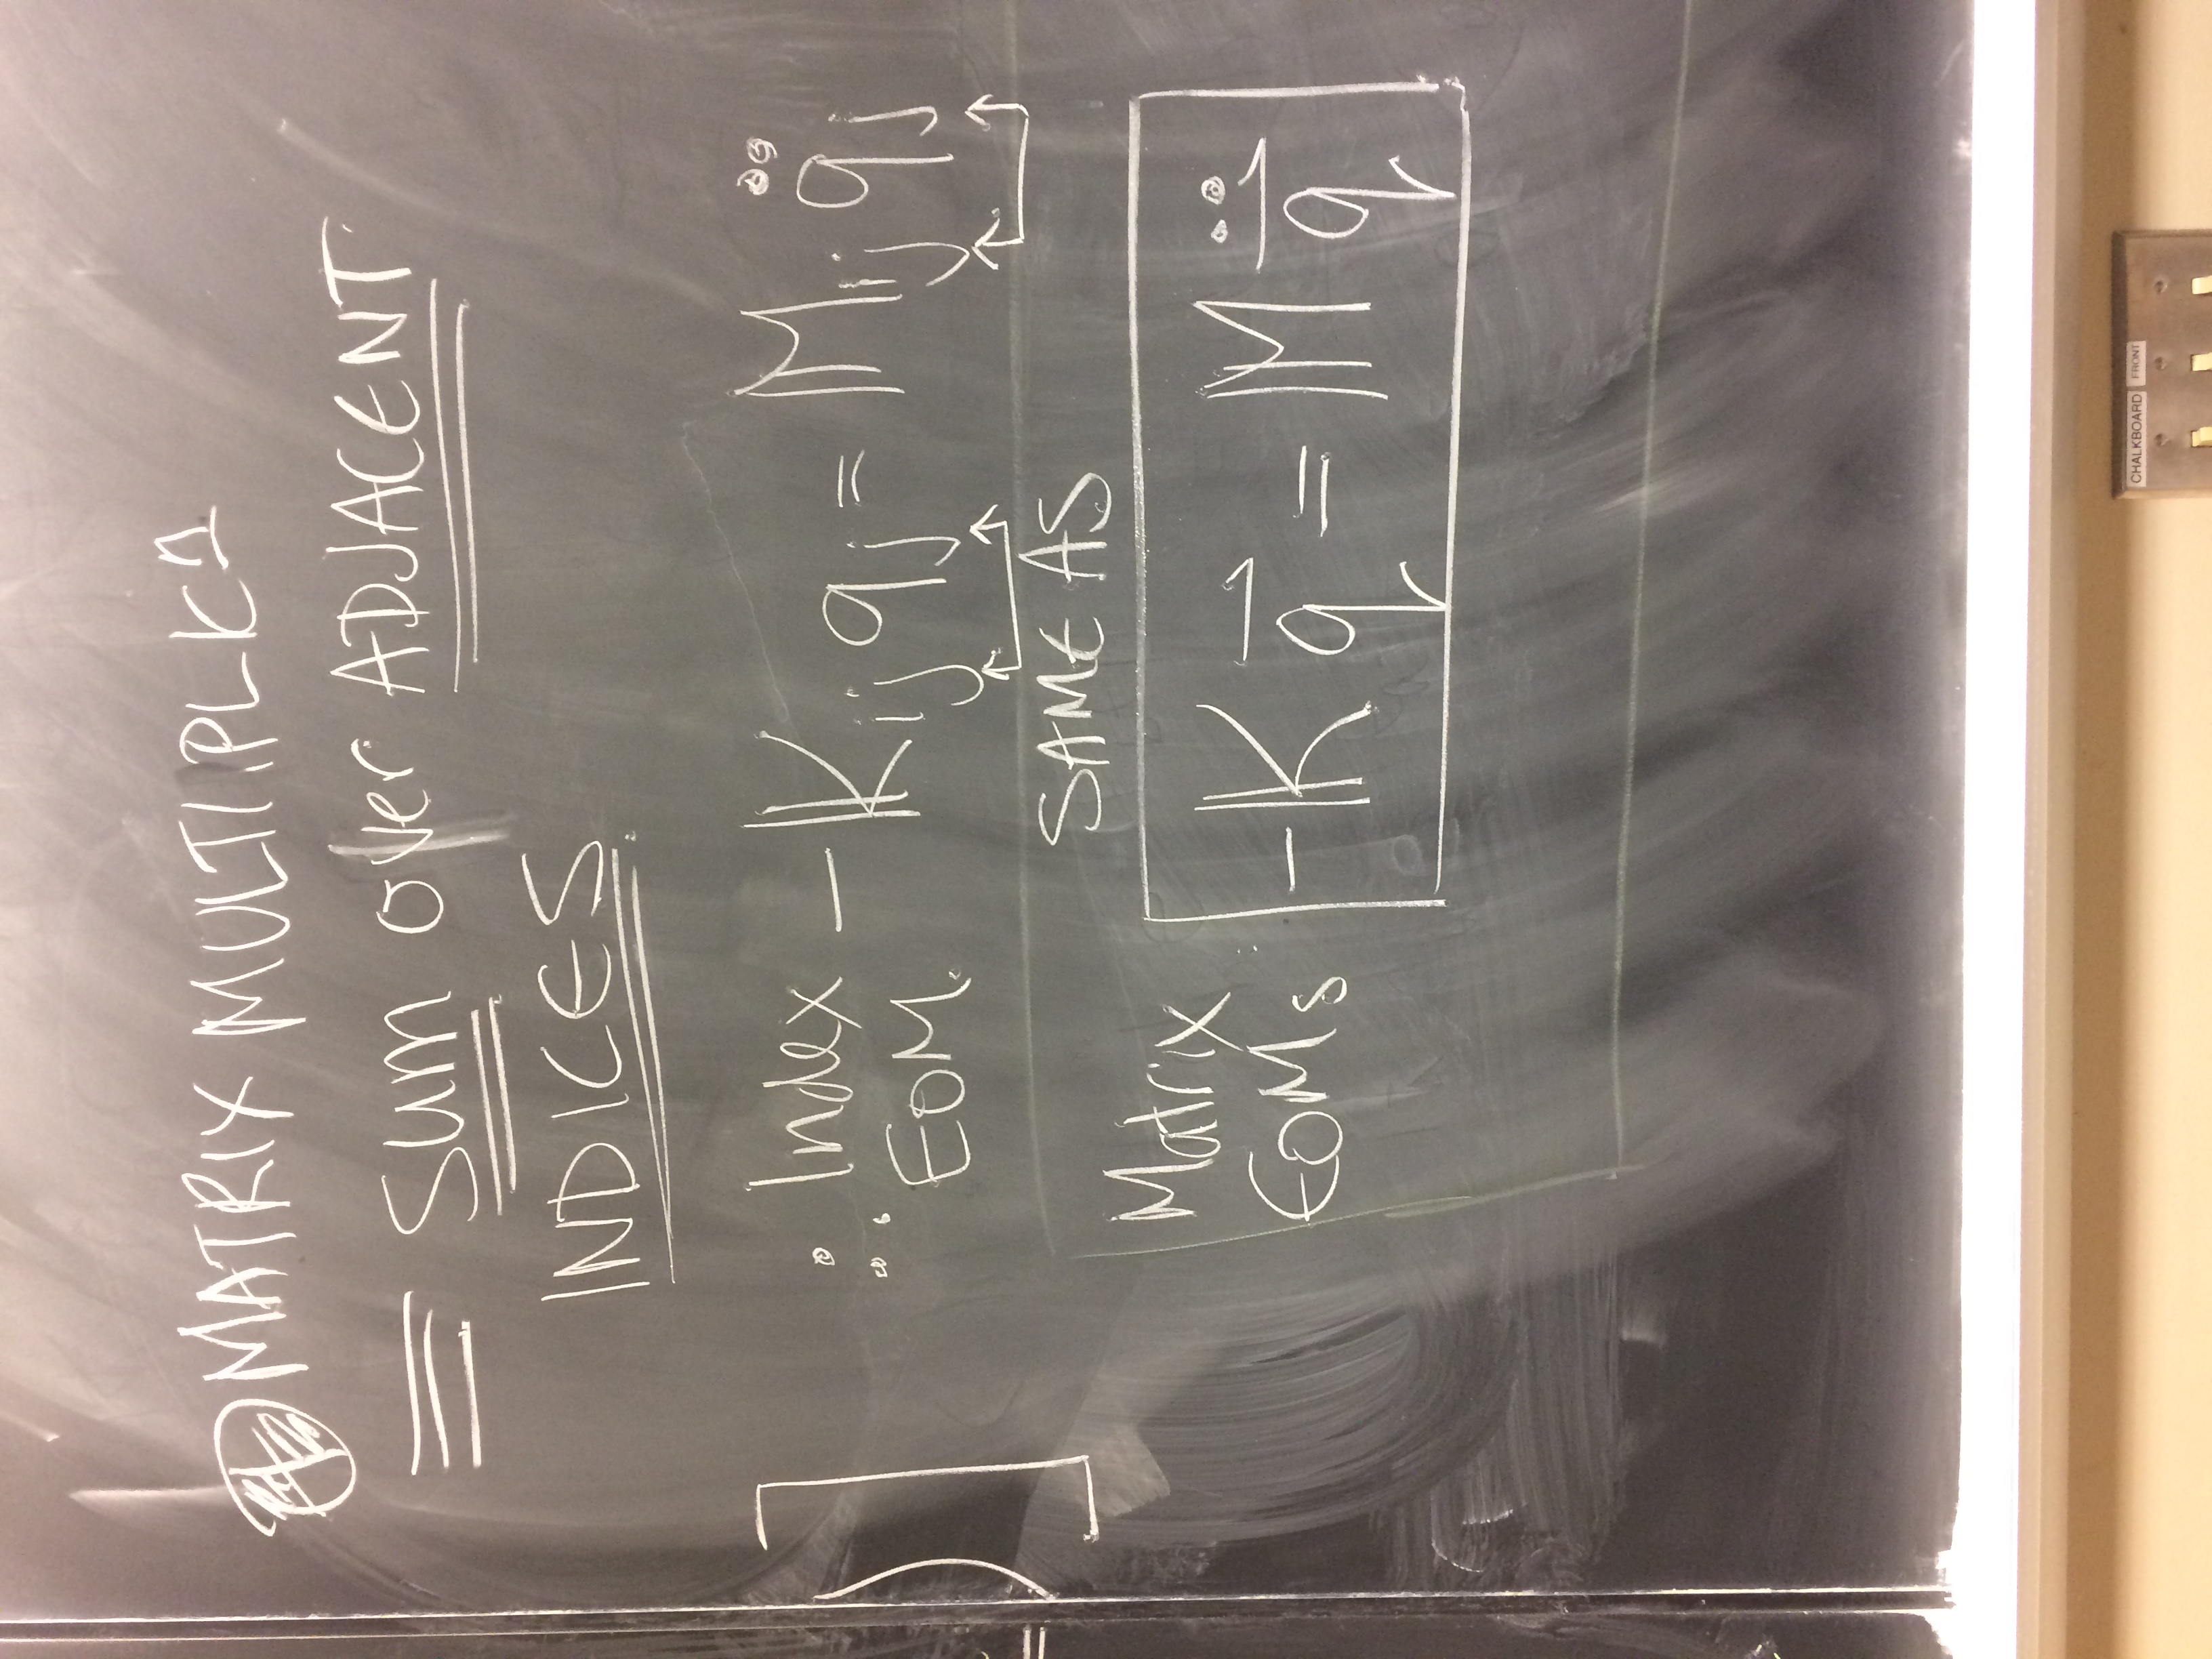 MATRIX MULTIPLICⁿ
≡ SUM over ADJACENT
INDICES.
∴ Index EOM. - K_ij q_j = M_ij q̈_j
SAME AS
Matrix EOMs : -K q⃗ = M q⃗̈
CHALKBOARD FRONT